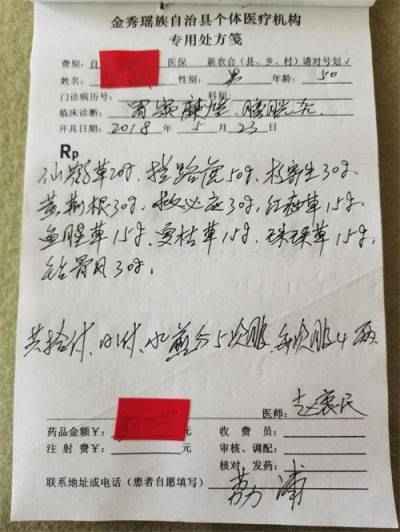 金秀瑶族自治县个体医疗机构
专用处方笺
费别：自 医保 新农合（县、乡、村）请对号划√
姓名： 性别：男 年龄：50
门诊病历号： 科别：
临床诊断：胃
开具日期：2018 年 5 月 23 日
Rp
仙鹤草20g、路 50g、寄生30g
黄荆根30g、救必应30g、红 草15g、
鱼腥草15g、夏枯草15g、珍珠草15g、
钻骨风30g。
共拾付、日1付、水煎分5次服 每次服4两
医师：赵 民
药品金额¥： 元 收 费 员：
注 射 费¥： 元 审核、调配：
核对、发药：
联系地址或电话（患者自愿填写）